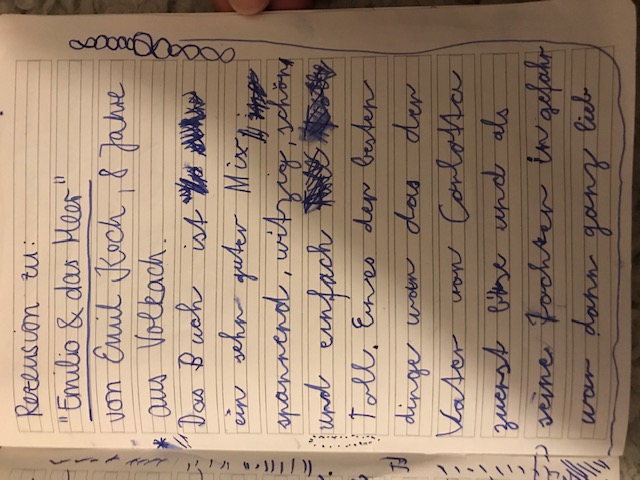 Rezension zu:
"Emilio & das Meer"
von Emil Koch, 8 Jahre
aus Volkach.
Das Buch ist
ein sehr guter Mix,
spannend, witzig, schön
und einfach
Toll. Eines der besten
dinge war das der
Vater von Carlotta
zuerst böse und als
seine Tochter in gefahr
war dann ganz lieb